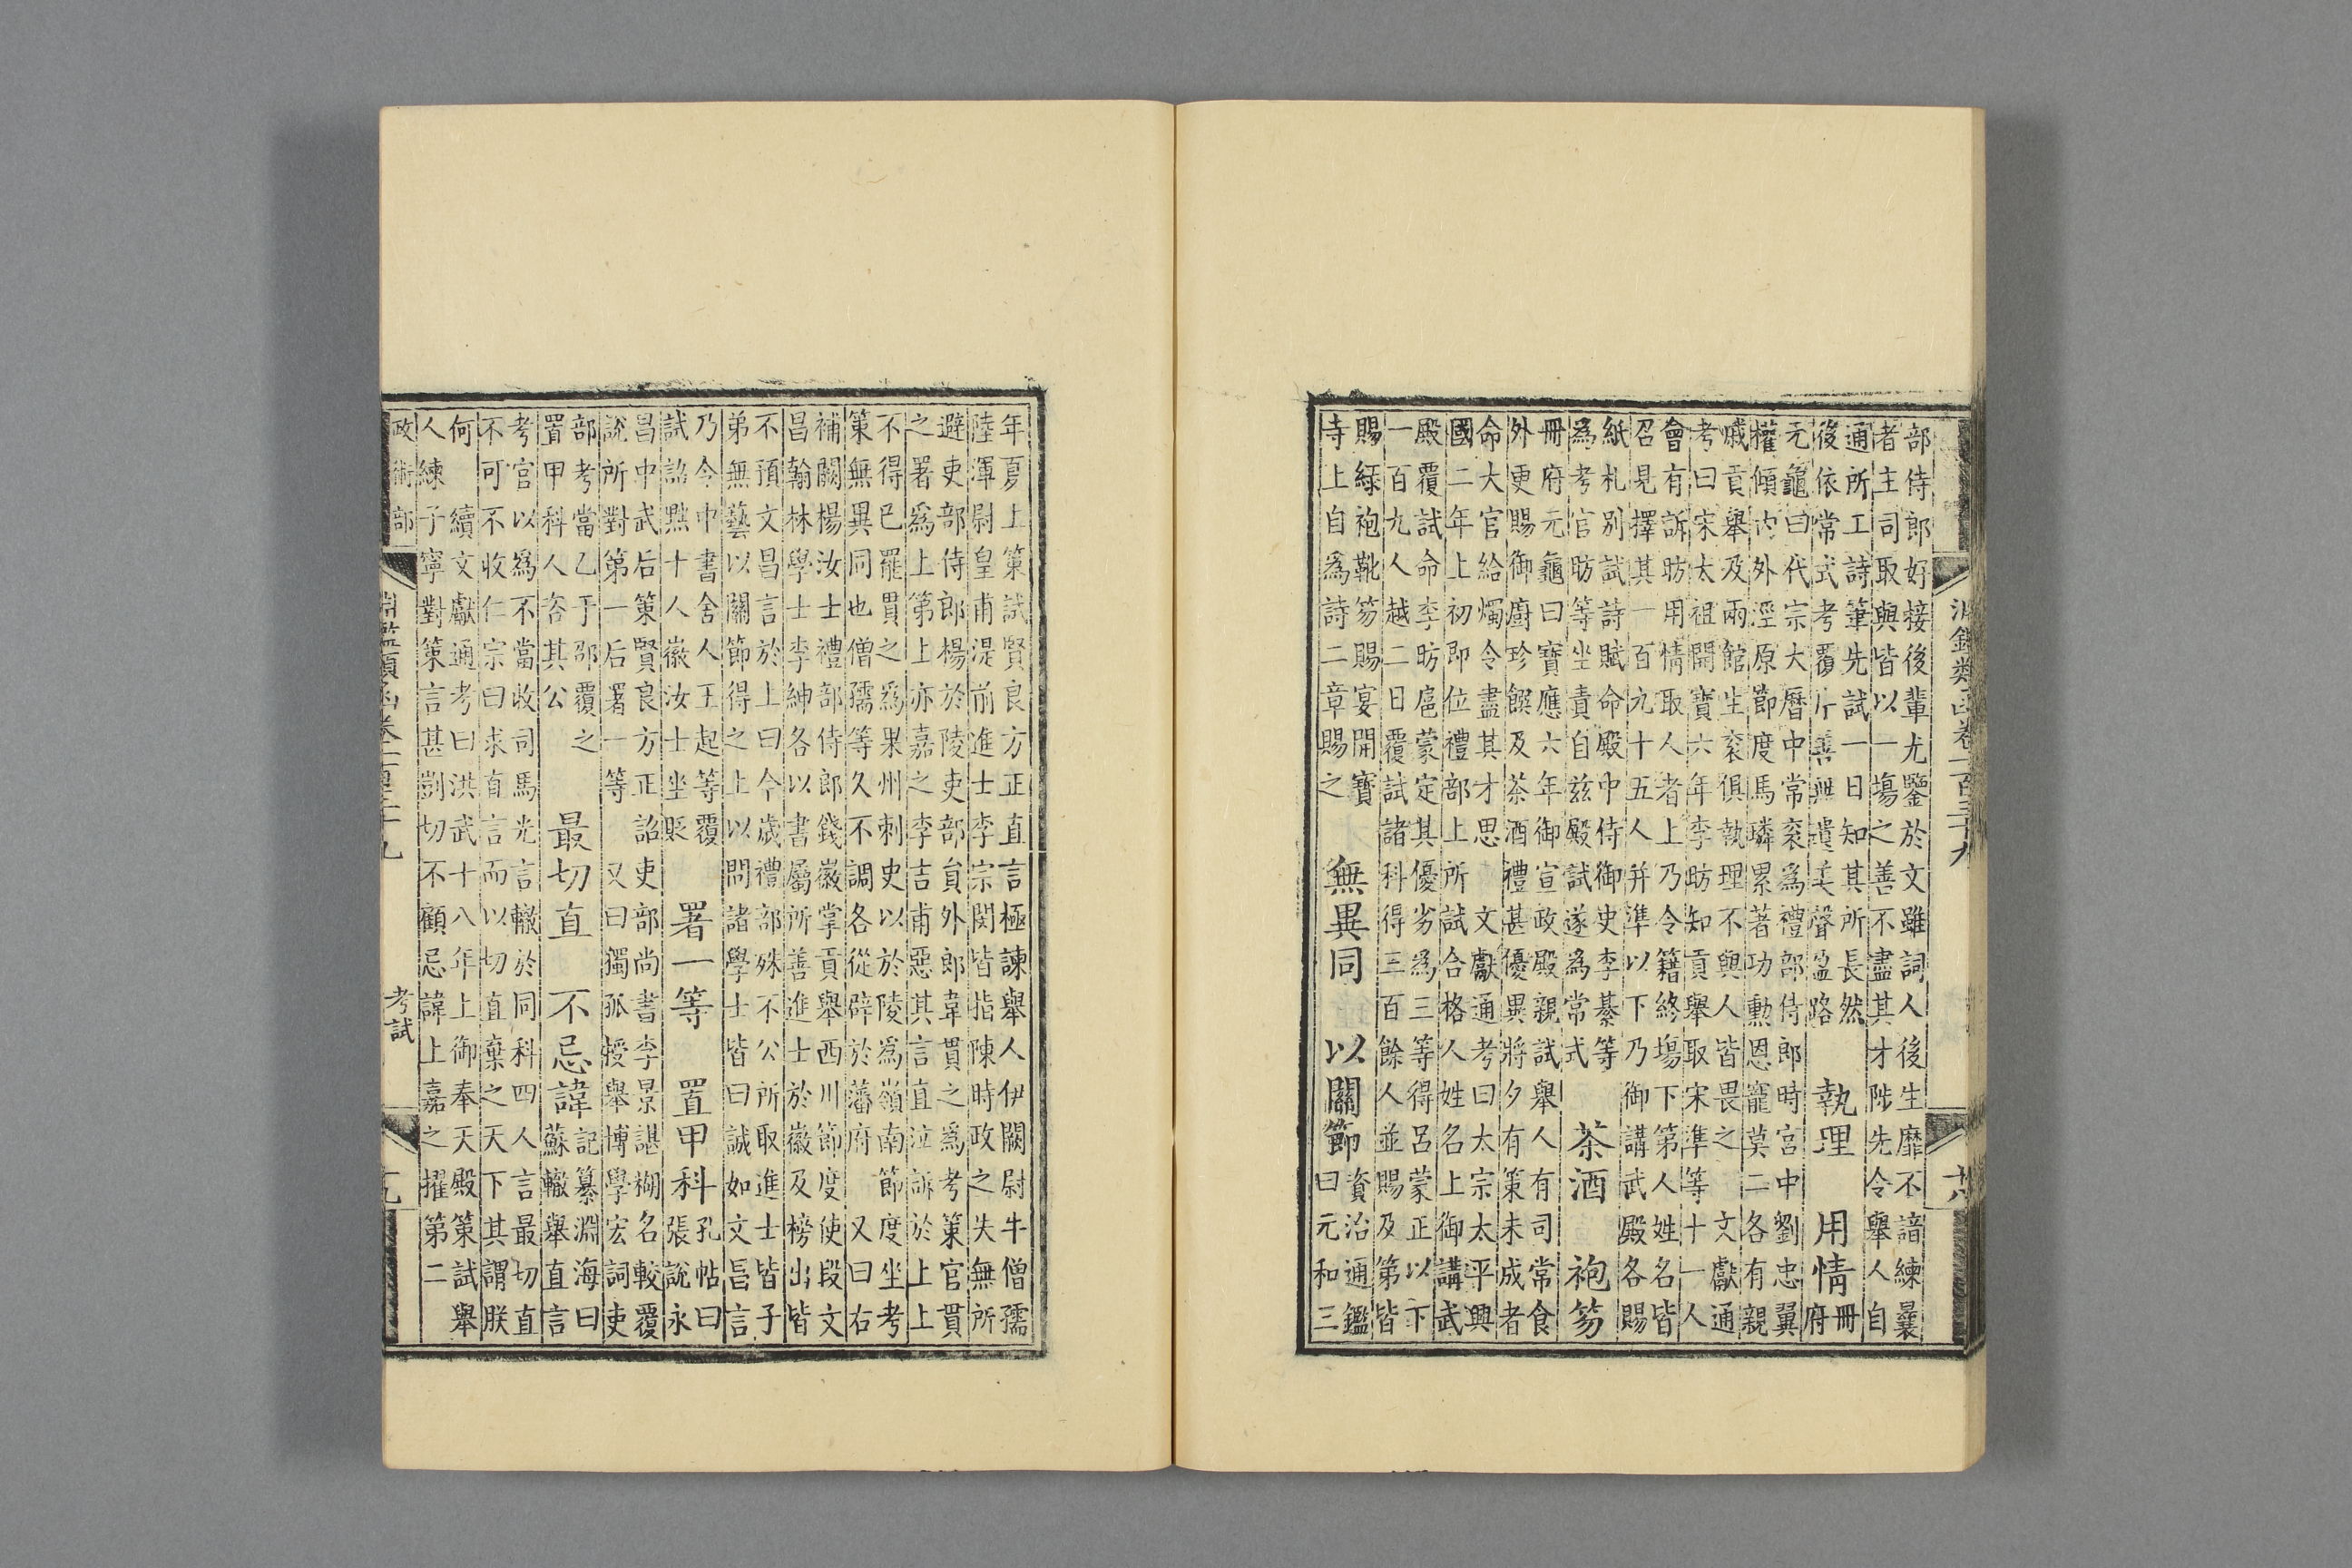 淵鑑類函卷一百三十九 十八
部侍郎好接後輩尤鑒於文雖詞人後生靡不諳練曩
者主司取與皆以一塲之善不盡其才陟先令舉人自
通所工詩筆先試一日知其所長然
後依常式考覈片善無遺美聲盈路
執理 用情 冊
府
元龜曰代宗大曆中常袞爲禮部侍郎時宮中劉忠翼
權傾内外涇原節度馬璘累著功勳恩寵莫二各有親
戚貢舉及兩館生袞俱執理不與人皆畏之 文獻通
考曰宋太祖開寶六年李昉知貢舉取宋準等十一人
會有訴昉用情取人者上乃令籍終塲下第人姓名皆
召見擇其一百九十五人并準以下乃御講武殿各賜
紙札別試詩賦命殿中侍御史李綦等
爲考官昉等坐責自兹殿試遂爲常式
茶酒 袍笏
冊府元龜曰寶應六年御宣政殿親試舉人有司常食
外更賜御廚珍饌及茶酒禮甚優異將夕有策未成者
命大官給燭令盡其才思 文獻通考曰太宗太平興
國二年上初即位禮部上所試合格人姓名上御講武
殿覆試命李昉扈蒙定其優劣爲三等得呂蒙正以下
一百九人越二日覆試諸科得三百餘人並賜及第皆
賜綠袍靴笏賜宴開寶
寺上自爲詩二章賜之
無異同 以關節 資治通鑑
曰元和三
年夏上策試賢良方正直言極諫舉人伊闕尉牛僧孺
陸渾尉皇甫湜前進士李宗閔皆指陳時政之失無所
避吏部侍郎楊於陵吏部員外郎韋貫之爲考策官貫
之署爲上第上亦嘉之李吉甫惡其言直泣訴於上上
不得已罷貫之爲果州刺史以於陵爲嶺南節度坐考
策無異同也僧孺等久不調各從辟於藩府 又曰右
補闕楊汝士禮部侍郎錢徽掌貢舉西川節度使段文
昌翰林學士李紳各以書屬所善進士於徽及榜出皆
不預文昌言於上曰今歲禮部殊不公所取進士皆子
弟無藝以關節得之上以問諸學士皆曰誠如文昌言
乃令中書舍人王起等覆
試詔黜十人徽汝士坐貶
署一等 置甲科 孔帖曰
張說永
昌中武后策賢良方正詔吏部尚書李景諶糊名較覆
說所對第一后署一等 又曰獨孤授舉博學宏詞吏
部考當乙于邵覆之
置甲科人咨其公
最切直 不忌諱 記纂淵海曰
蘇轍舉直言
考官以爲不當收司馬光言轍於同科四人言最切直
不可不收仁宗曰求直言而以切直棄之天下其謂朕
何 續文獻通考曰洪武十八年上御奉天殿策試舉
人練子寧對策言甚剴切不顧忌諱上嘉之擢第二
政術部 淵鑑類函卷一百三十九 考試